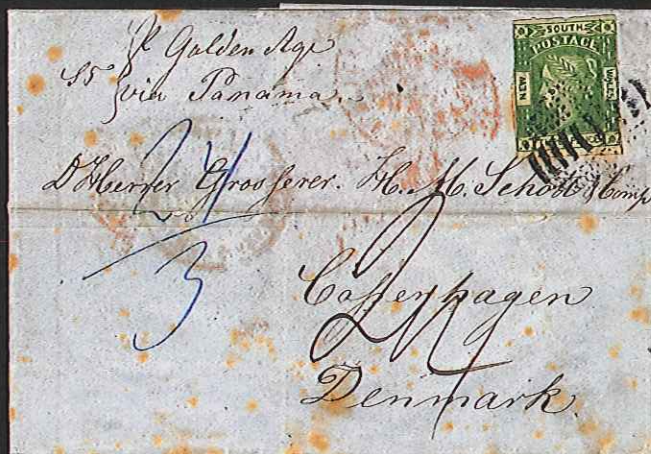 p Golden Age
SS via Panama
SOUTH
POSTAGE
NEW
WALES
D'Herrer Grosserer. H. M. Schou & Comp
24
3
Copenhagen
24
Denmark.